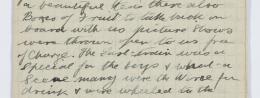 a beautiful Rein there also
Boxes of Fruit to take back on
board with us picture Shows
were thrown open to us free
of Charge. The last train was a
Special for the boys & what a
Scene many were the Worse for
drink & was wheeled to the